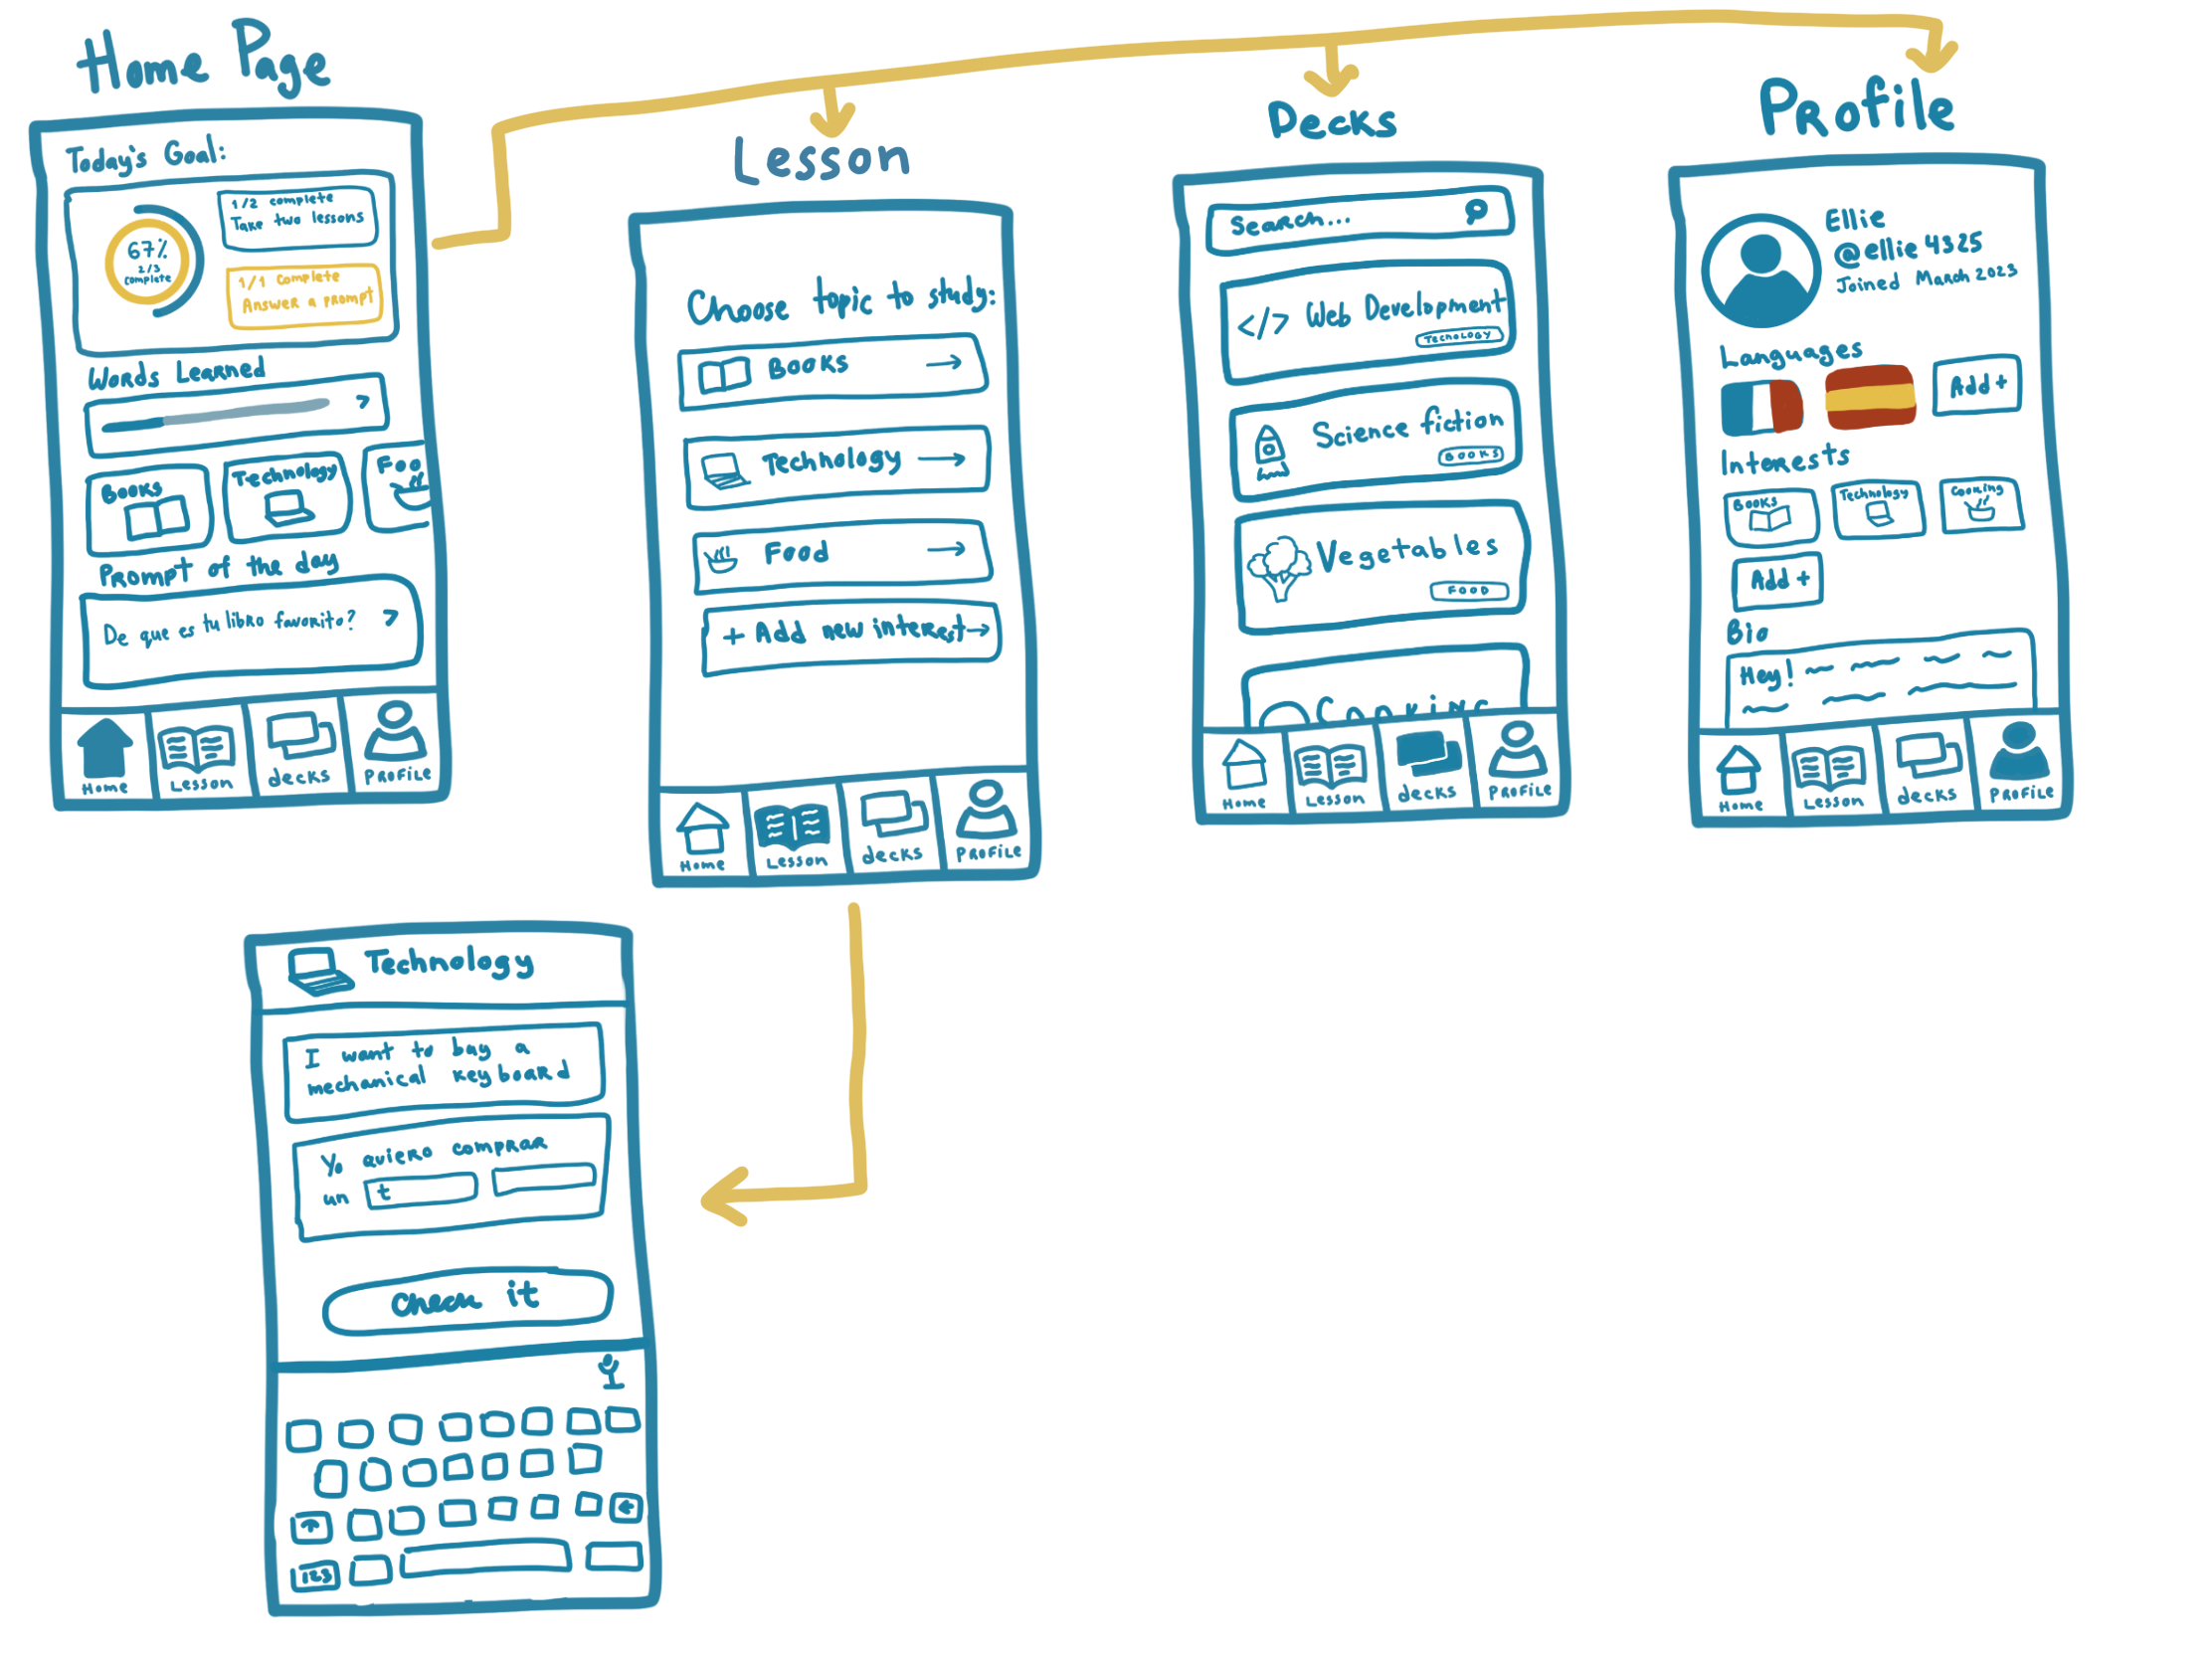 Home Page
Today's Goal:
67%
2/3
complete
1/2 complete
Take two lessons
1/1 complete
Answer a prompt
Words Learned
Books
Technology
Foo
Prompt of the day
De que es tu libro favorito?
Home
Lesson
decks
Profile
Lesson
Choose topic to study:
Books
Technology
Food
+ Add new interest
Home
Lesson
decks
Profile
Decks
Search...
</> Web Development
Technology
Science fiction
Books
Vegetables
Food
Cooking
Home
Lesson
decks
Profile
Profile
Ellie
@ellie4325
Joined March 2023
Languages
Add +
Interests
Books
Technology
Cooking
Add +
Bio
Hey!
Home
Lesson
decks
Profile
Technology
I want to buy a
mechanical keyboard
Yo quiero comprar
un t
Check it
123